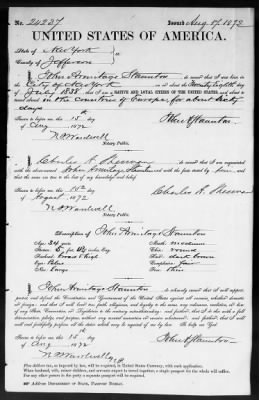 No. 24237 Issued Aug. 17, 1872
UNITED STATES OF AMERICA.
State of New York
County of Jefferson
I, John Armitage Staunton do swear that I was born in the
City of New York on the twenty eighth day of
July 1838; that I am a NATIVE AND LOYAL CITIZEN OF THE UNITED STATES, and about to
travel abroad in the countries of Europe for about sixty
days
Sworn to before me this 15th day
of Aug 1872
John A Staunton
N A Wardwell
Notary Public.
I, Charles A. Sherman do swear that I am acquainted with
the above-named John Armitage Staunton and with the facts by him
and that the same are true to the best of my knowledge and belief.
Charles A. Sherman
Sworn to before me this 15th day
of August 1872
N A Wardwell
Notary Public.
Description of John Armitage Staunton
Age: 34 years
Mouth: medium
Stature: 5 feet
Chin: round
Forehead: broad & high
Hair: dark brown
Eyes:
Complexion: fair
Nose: large
Face: thin
I, John Armitage Staunton do solemnly swear that I will support,
protect, and defend the Constitution and Government of the United States against all enemies, whether domestic
or foreign; and that I will bear true faith, allegiance, and loyalty to the same, any ordinance, resolution, or law
of any State, Convention, or Legislature to the contrary notwithstanding; and further, that I do this with a full
determination, pledge, and purpose, without any mental reservation or evasion whatsoever; and, further, that I will
well and faithfully perform all the duties which may be required of me by law. So help me God
Sworn to before me this 15th day
of Aug 1872
John A Staunton
N A Wardwell
ADDRESS DEPARTMENT OF STATE, PASSPORT BUREAU.